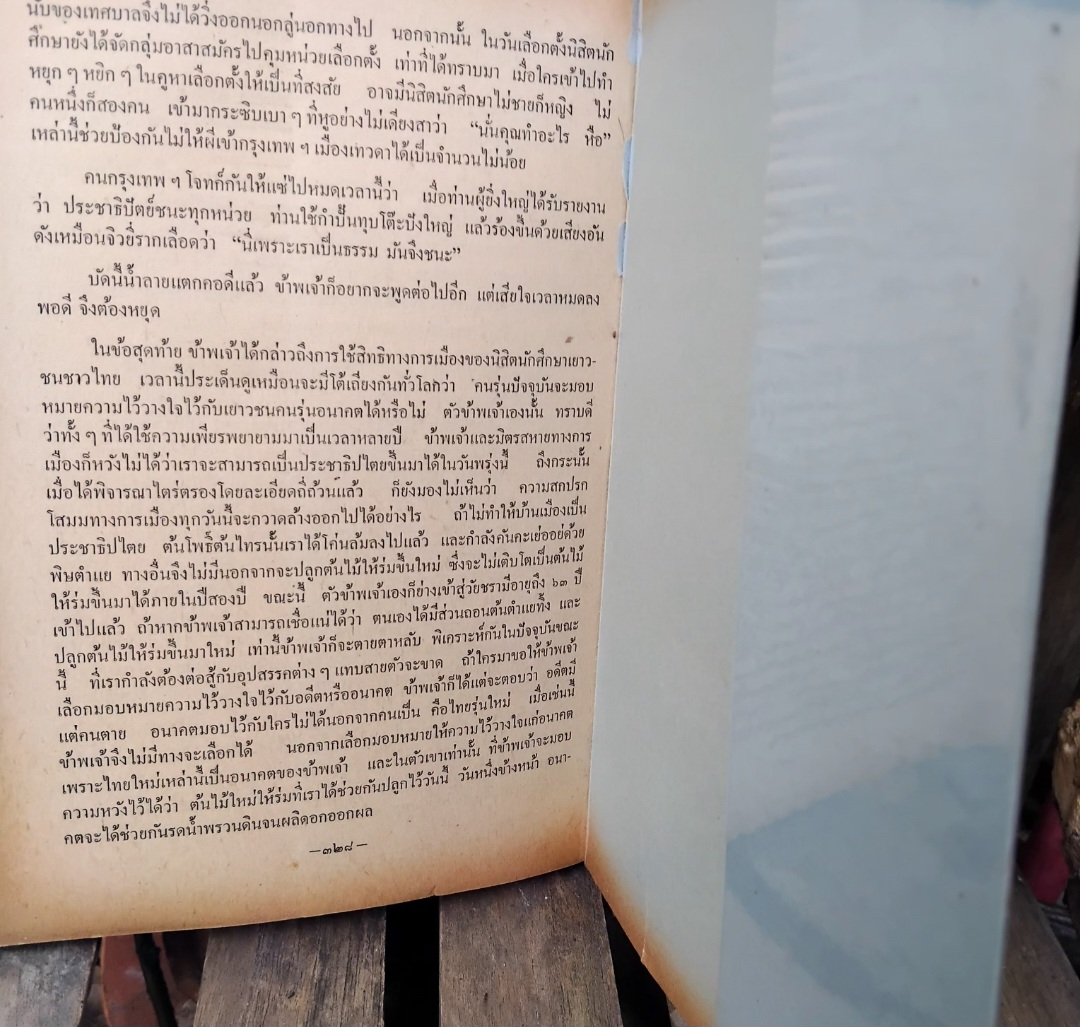 นับของเทศบาลจึงไม่ได้วิ่งออกนอกลู่นอกทางไป นอกจากนั้น ในวันเลือกตั้งนิสิตนัก
ศึกษายังได้จัดกลุ่มอาสาสมัครไปคุมหน่วยเลือกตั้ง เท่าที่ได้ทราบมา เมื่อใครเข้าไปทำ
หยุก ๆ หยิก ๆ ในคูหาเลือกตั้งให้เป็นที่สงสัย อาจมีนิสิตนักศึกษาไม่ชายก็หญิง ไม่
คนหนึ่งก็สองคน เข้ามากระซิบเบา ๆ ที่หูอย่างไม่เดียงสาว่า “นั่นคุณทำอะไร หือ”
เหล่านี้ช่วยป้องกันไม่ให้ผีเข้ากรุงเทพ ฯ เมืองเทวดาได้เป็นจำนวนไม่น้อย
คนกรุงเทพ ฯ โจทก์กันให้แซ่ไปหมดเวลานี้ว่า เมื่อท่านผู้ยิ่งใหญ่ได้รับรายงาน
ว่า ประชาธิปัตย์ชนะทุกหน่วย ท่านใช้กำปั้นทุบโต๊ะปังใหญ่ แล้วร้องขึ้นด้วยเสียงอัน
ดังเหมือนจิวยี่รากเลือดว่า “นี่เพราะเราเป็นธรรม มันจึงชนะ”
บัดนี้น้ำลายแตกคอดีแล้ว ข้าพเจ้าก็อยากจะพูดต่อไปอีก แต่เสียใจเวลาหมดลง
พอดี จึงต้องหยุด
ในข้อสุดท้าย ข้าพเจ้าได้กล่าวถึงการใช้สิทธิทางการเมืองของนิสิตนักศึกษาเยาว-
ชนชาวไทย เวลานี้ประเด็นดูเหมือนจะมีโต้เถียงกันทั่วโลกว่า คนรุ่นปัจจุบันจะมอบ
หมายความไว้วางใจไว้กับเยาวชนคนรุ่นอนาคตได้หรือไม่ ตัวข้าพเจ้าเองนั้น ทราบดี
ว่าทั้ง ๆ ที่ได้ใช้ความเพียรพยายามมาเป็นเวลาหลายปี ข้าพเจ้าและมิตรสหายทางการ
เมืองก็หวังไม่ได้ว่าเราจะสามารถเป็นประชาธิปไตยขึ้นมาได้ในวันพรุ่งนี้ ถึงกระนั้น
เมื่อได้พิจารณาไตร่ตรองโดยละเอียดถี่ถ้วนแล้ว ก็ยังมองไม่เห็นว่า ความสกปรก
โสมมทางการเมืองทุกวันนี้จะกวาดล้างออกไปได้อย่างไร ถ้าไม่ทำให้บ้านเมืองเป็น
ประชาธิปไตย ต้นโพธิ์ต้นไทรนั้นเราได้โค่นล้มลงไปแล้ว และกำลังคันคะเย่ออยู่ด้วย
พิษตำแย ทางอื่นจึงไม่มีนอกจากจะปลูกต้นไม้ให้ร่มขึ้นใหม่ ซึ่งจะไม่เติบโตเป็นต้นไม้
ให้ร่มขึ้นมาได้ภายในปีสองปี ขณะนี้ ตัวข้าพเจ้าเองก็ย่างเข้าสู่วัยชรามีอายุถึง ๖๓ ปี
เข้าไปแล้ว ถ้าหากข้าพเจ้าสามารถเชื่อแน่ได้ว่า ตนเองได้มีส่วนถอนต้นตำแยทิ้ง และ
ปลูกต้นไม้ให้ร่มขึ้นมาใหม่ เท่านี้ข้าพเจ้าก็จะตายตาหลับ พิเคราะห์กันในปัจจุบันขณะ
นี้ ที่เรากำลังต้องต่อสู้กับอุปสรรคต่าง ๆ แทบสายตัวจะขาด ถ้าใครมาขอให้ข้าพเจ้า
เลือกมอบหมายความไว้วางใจไว้กับอดีตหรืออนาคต ข้าพเจ้าก็ได้แต่จะตอบว่า อดีตมี
แต่คนตาย อนาคตมอบไว้กับใครไม่ได้นอกจากคนเป็น คือไทยรุ่นใหม่ เมื่อเช่นนี้
ข้าพเจ้าจึงไม่มีทางจะเลือกได้ นอกจากเลือกมอบหมายให้ความไว้วางใจแก่อนาคต
เพราะไทยใหม่เหล่านี้เป็นอนาคตของข้าพเจ้า และในตัวเขาเท่านั้น ที่ข้าพเจ้าจะมอบ
ความหวังไว้ได้ว่า ต้นไม้ใหม่ให้ร่มที่เราได้ช่วยกันปลูกไว้วันนี้ วันหนึ่งข้างหน้า อนา-
คตจะได้ช่วยกันรดน้ำพรวนดินจนผลิดอกออกผล
—๓๒๘—